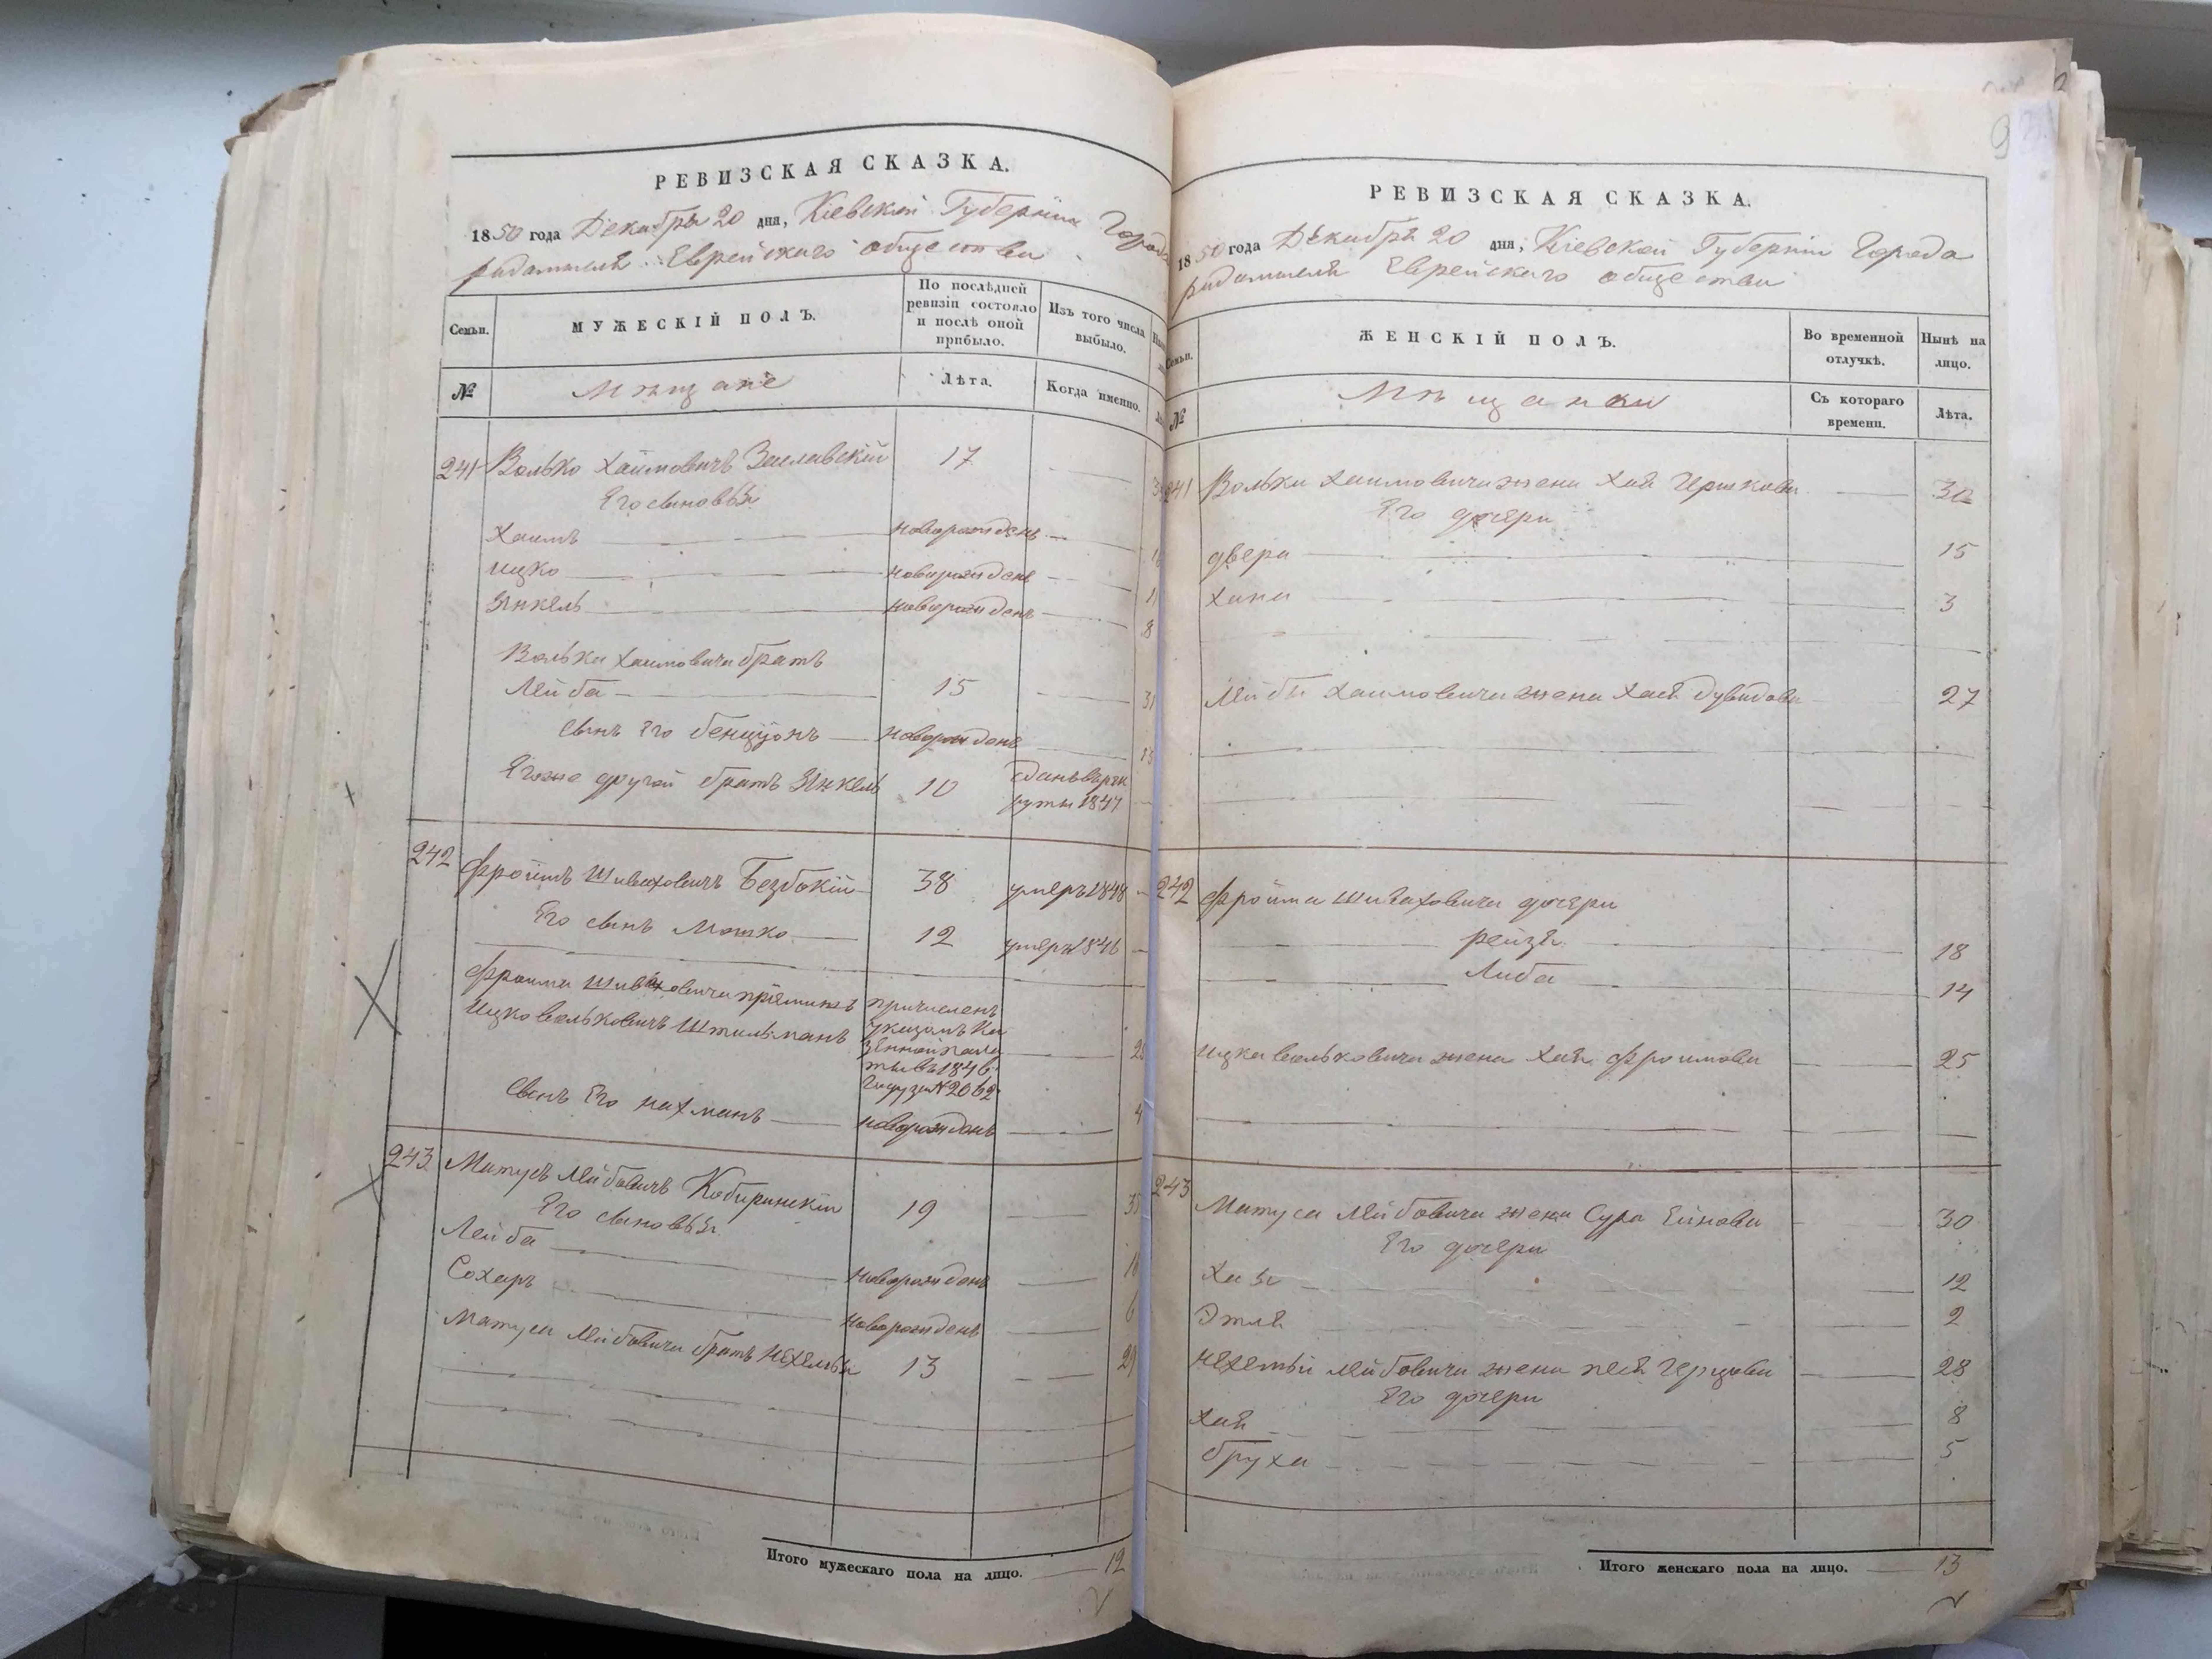 РЕВИЗСКАЯ СКАЗКА.
1850 года Декабря 20 дня, Кіевской Губерніи Города
Радомысля Еврейскаго общества
Семьи.
МУЖЕСКІЙ ПОЛЪ.
По послѣдней ревизіи состояло и послѣ оной прибыло.
Изъ того числа выбыло.
№
Мѣщане
Лѣта.
Когда именно.
241 Волько Хаимовичъ Заславскій 17
Его сыновья
Хаимъ новорожденъ
Ицко новорожденъ 11
Янкель новорожденъ 8
Волька Хаимовича братъ
Лейба 15 31
Сынъ Его бенціонъ новорожденъ 13
Егоже другой братъ Янкель 10 сданъ въ рек
руты 1847
242 Фроимъ Шиваховичъ 38 умеръ 1848
Его сынъ Мошко 12 умеръ 1846
Фроима Шиваховича
Ицко Вольковичъ Штильманъ
причисленъ
указомъ Ка
зенной пала
ты въ 1846
году за № 2062
Сынъ Его нахманъ новорожденъ 4
243 Матусъ Лейбовичъ Кобиринскій 19
Его сыновья
Лейба новорожденъ
Сохаръ новорожденъ 6
Матуса Лейбовича братъ Нехемья 13
Итого мужескаго пола на лицо. 12
РЕВИЗСКАЯ СКАЗКА.
1850 года Декабря 20 дня, Кіевской Губерніи Города
Радомысля Еврейскаго общества
Семьи.
ЖЕНСКІЙ ПОЛЪ.
Во временной отлучкѣ.
Нынѣ на лицо.
№
Мѣщанки
Съ котораго времени.
Лѣта.
241 Волька Хаимовича жена Хая Гершкова 30
Его дочери
двера 15
Хана 3
Лейбы Хаимовича жена Хая Дувидова 27
242 Фроима Шиваховича дочери
рейзя 18
Либа 14
Ицка Вольковича жена Хая Фроимова 25
243
Матуса Лейбовича жена Сура 30
Его дочери
Хая 12
Этля 2
Нехемьи Лейбовича жена песя Герцова 28
Его дочери
Хая 8
бруха 5
Итого женскаго пола на лицо. 13